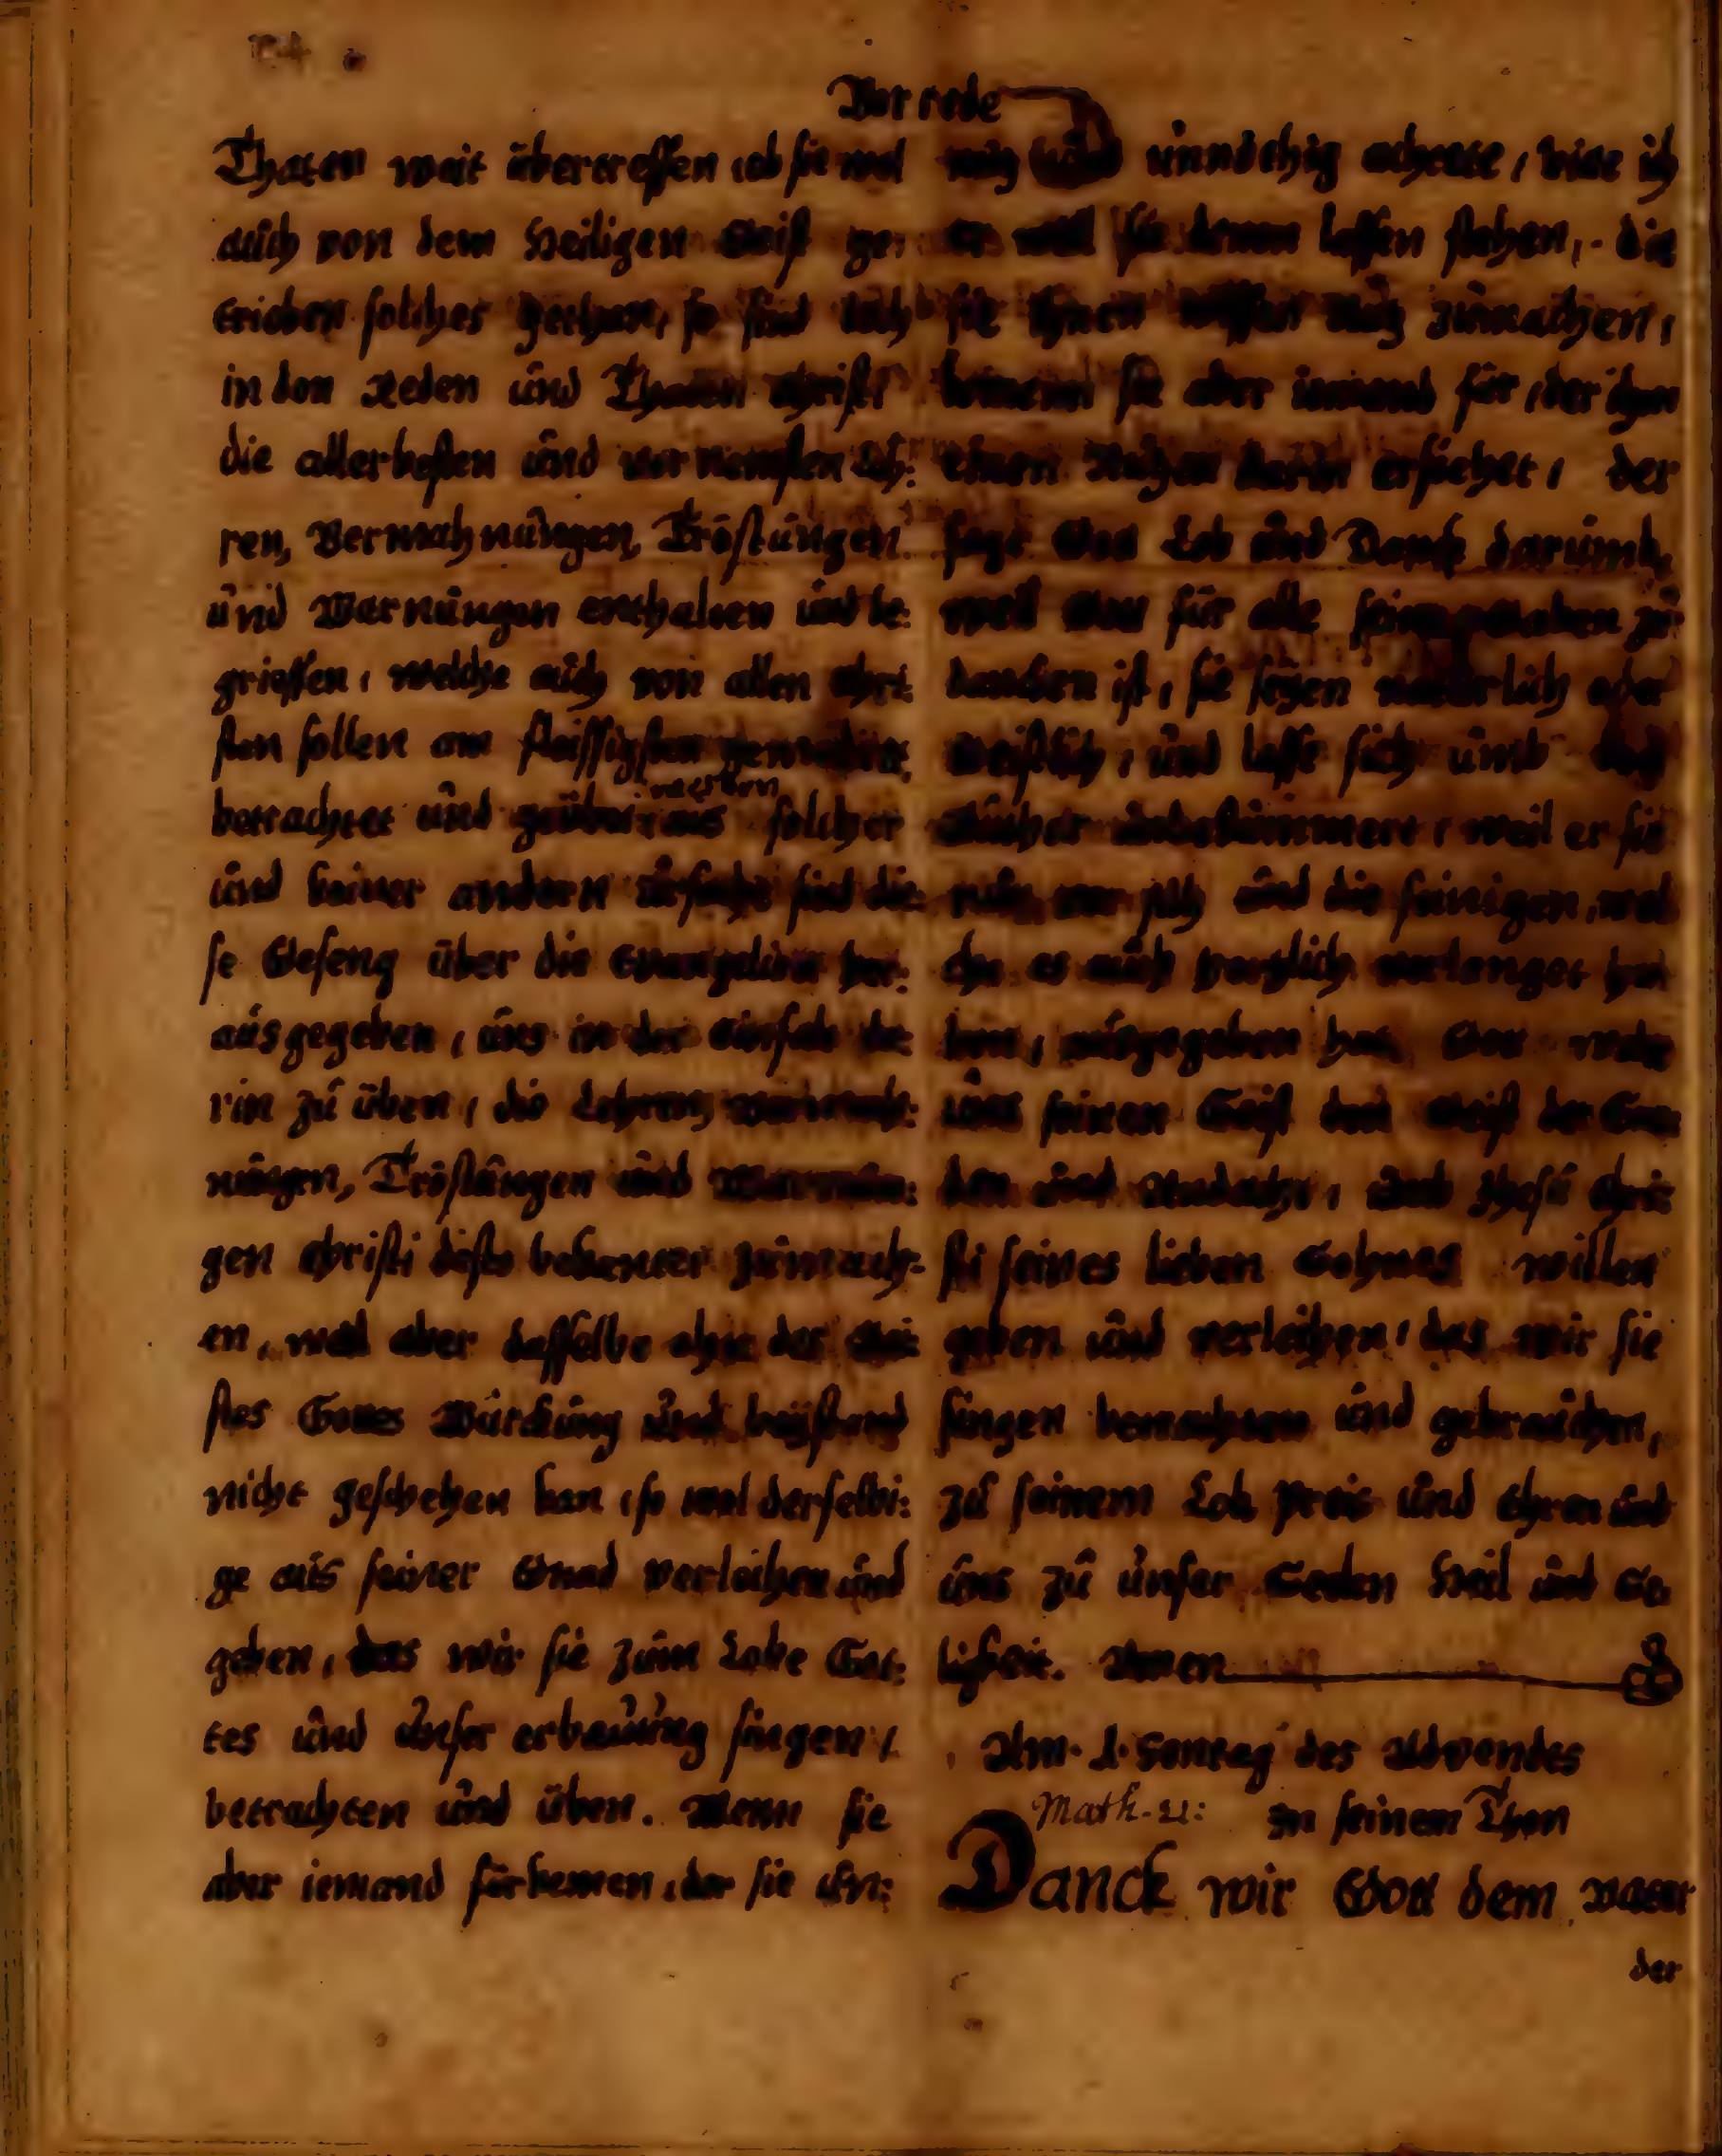 Vorrede
Thaten weit übertreffen, ob sie wol
auch von dem Heiligen Geist ge:
trieben solches gethan, so sind doch
in den Reden und Thaten Christi
die allerbesten und vornemsten Leh:
ren, Vermahnungen, Tröstungen
und Warnungen enthalten und be:
grieffen, welche auch von allen Chri:
sten sollen am fleissigsten
betrachtet und geübet werden, aus solcher
und keiner andern ursache sind die:
se Geseng über die Evangelien her:
ausgegeben, uns in der Einfalt da:
rin zu üben, die Lehren, Vermah:
nungen, Tröstungen und Warnun:
gen Christi desto bekanter zumach:
en, weil aber dasselbe ohne des Gei:
stes Gottes Würckung und beystand
nicht geschehen kan, so wol derselbi:
ge aus seiner Gnad verleihen und
geben, das wir sie zum Lobe Got:
tes und unser erbauung singen,
betrachten und üben. Wenn sie
aber iemand fürkemen, der sie un:
nötig und unnöthig achtete, bitte ich
er woll sie denen lassen stehen, die
sie ihnen wissen nütz zumachen,
kommen sie aber iemand für, der ihm
einen Nutzen darin ersiehet, der
sage Gott Lob und Danck darumb,
weil Gott für alle seine Gaben zu
dancken ist, sie seyen natürlich oder
Geistlich, und lasse sich umb den
unbekümmert, weil er sie
nur vor sich und die seinigen, wel
che es auch hertzlich verlanget ha
ben, ausgegeben hat, Gott wolle
uns seinen Geist den Geist der Gna
den und Andacht, umb Jhesu Chri:
sti seines lieben Sohnes willen
geben und verleihen, das wir sie
singen betrachten und gebrauchen,
zu seinem Lob Preis und Ehren und
uns zu unser Seelen Heil und Se
ligkeit. Amen
Am 1. Sontag des Adventes
Math. 21: In seinem Thon
Danck wir Gott dem Vater
der